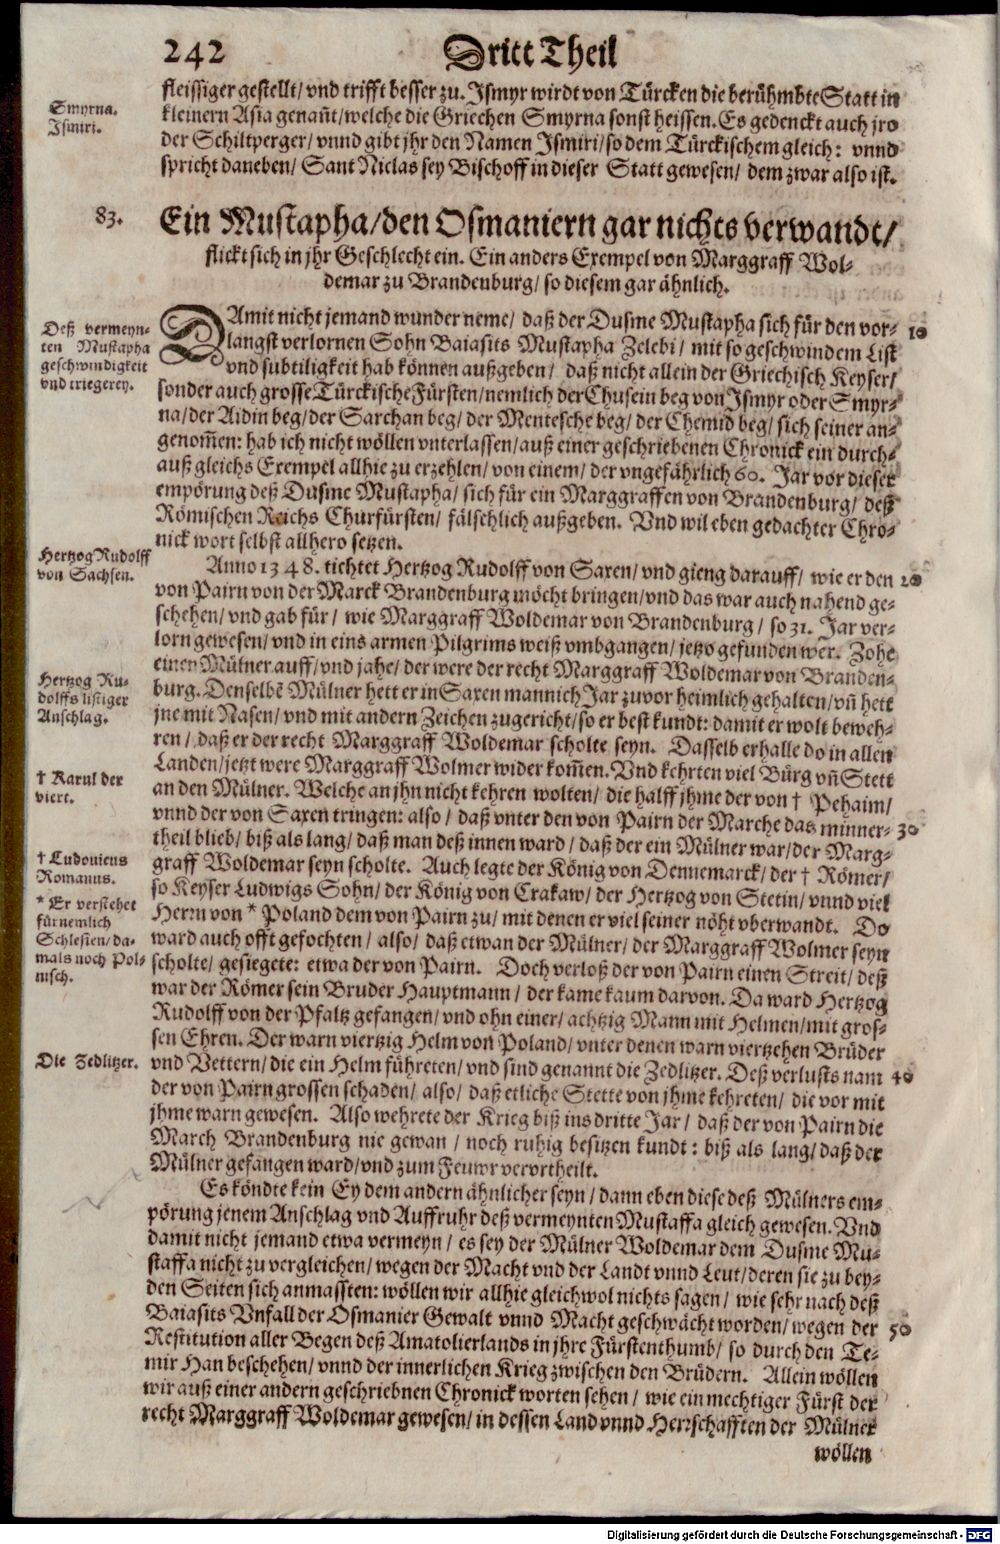 242
Dritt Theil
fleissiger gestellt/ vnd trifft besser zu. Ismyr wirdt von Türcken die berühmbte Statt in
kleinern Asia genañt/ welche die Griechen Smyrna sonst heissen. Es gedenckt auch jro
der Schiltperger/ vnnd gibt jhr den Namen Ismiri/ so dem Türckischem gleich: vnnd
spricht daneben/ Sant Niclas sey Bischoff in dieser Statt gewesen/ dem zwar also ist.
Smyrna.
Ismiri.
83.
Ein Mustapha/ den Osmaniern gar nichts verwandt/
flickt sich in jhr Geschlecht ein. Ein anders Exempel von Marggraff Wol-
demar zu Brandenburg/ so diesem gar ähnlich.
Deß vermeyn-
ten Mustapha
geschwindigkeit
vnd triegerey.
DAmit nicht jemand wunder neme/ daß der Dusme Mustapha sich für den vor- 10
langst verlornen Sohn Baiasits Mustapha Zelebi/ mit so geschwindem List
vnd subtiligkeit hab können außgeben/ daß nicht allein der Griechisch Keyser/
sonder auch grosse Türckische Fürsten/ nemlich der Chusein beg von Ismyr oder Smyr-
na/ der Aidin beg/ der Sarchan beg/ der Mentesche beg/ der Chemid beg/ sich seiner an-
genom̃en: hab ich nicht wöllen vnterlassen/ auß einer geschriebenen Chronick ein durch-
auß gleichs Exempel allhie zu erzehlen/ von einem/ der vngefährlich 60. Jar vor dieser
empörung deß Dusme Mustapha/ sich für ein Marggraffen von Brandenburg/ deß
Römischen Reichs Churfürsten/ fälschlich außgeben. Vnd wil eben gedachter Chro-
nick wort selbst allhero setzen.
Hertzog Rudolff
von Sachsen.
Anno 1348. tichtet Hertzog Rudolff von Saxen/ vnd gieng darauff/ wie er den 20
von Pairn von der Marck Brandenburg möcht bringen/ vnd das war auch nahend ge-
schehen/ vnd gab für/ wie Marggraff Woldemar von Brandenburg/ so 31. Jar ver-
lorn gewesen/ vnd in eins armen Pilgrims weiß vmbgangen/ jetzo gefunden wer. Zohe
einen Mülner auff/ vnd jahe/ der were der recht Marggraff Woldemar von Branden-
burg. Denselbẽ Mülner hett er in Saxen mannich Jar zuvor heimlich gehalten/ vñ hett
jne mit Nasen/ vnd mit andern Zeichen zugericht/ so er best kundt: damit er wolt beweh-
ren/ daß er der recht Marggraff Woldemar scholte seyn. Dasselb erhalle do in allen
Landen/ jetzt were Marggraff Wolmer wider kom̃en. Vnd kehrten viel Bürg vñ Stett
an den Mülner. Welche an jhn nicht kehren wolten/ die halff jhme der von † Pehaim/
vnnd der von Saxen tringen: also/ daß vnter den von Pairn der Marche das minner- 30
theil blieb/ biß als lang/ daß man deß innen ward/ daß der ein Mülner war/ der Marg-
graff Woldemar seyn scholte. Auch legte der König von Dennemarck/ der † Römer/
so Keyser Ludwigs Sohn/ der König von Crakaw/ der Hertzog von Stetin/ vnnd viel
Herrn von * Poland dem von Pairn zu/ mit denen er viel seiner nöht vberwandt. Do
ward auch offt gefochten/ also/ daß etwan der Mülner/ der Marggraff Wolmer seyn
scholte/ gesiegete: etwa der von Pairn. Doch verloß der von Pairn einen Streit/ deß
war der Römer sein Bruder Hauptmann/ der kame kaum darvon. Da ward Hertzog
Rudolff von der Pfaltz gefangen/ vnd ohn einer/ achtzig Mann mit Helmen/ mit gros-
sen Ehren. Der warn viertzig Helm von Poland/ vnter denen warn viertzehen Brüder
vnd Vettern/ die ein Helm führeten/ vnd sind genannt die Zedlitzer. Deß verlusts nam 40
der von Pairn grossen schaden/ also/ daß etliche Stette von jhme kehreten/ die vor mit
jhme warn gewesen. Also wehrete der Krieg biß ins dritte Jar/ daß der von Pairn die
March Brandenburg nie gewan/ noch ruhig besitzen kundt: biß als lang/ daß der
Mülner gefangen ward/ vnd zum Feuwr vervrtheilt.
Hertzog Ru-
dolffs listiger
Anschlag.
† Karul der
viert.
† Ludouicus
Romanus.
* Er verstehet
fürnemlich
Schlesien/ da-
mals noch Pol-
nisch.
Die Zedlitzer.
Es köndte kein Ey dem andern ähnlicher seyn/ dann eben diese deß Mülners em-
pörung jenem Anschlag vnd Auffruhr deß vermeynten Mustaffa gleich gewesen. Vnd
damit nicht jemand etwa vermeyn/ es sey der Mülner Woldemar dem Dusme Mu-
staffa nicht zu vergleichen/ wegen der Macht vnd der Landt vnnd Leut/ deren sie zu bey-
den Seiten sich anmassten: wöllen wir allhie gleichwol nichts sagen/ wie sehr nach deß
Baiasits Vnfall der Osmanier Gewalt vnnd Macht geschwächt worden/ wegen der 50
Restitution aller Begen deß Amatolierlands in jhre Fürstenthumb/ so durch den Te-
mir Han beschehen/ vnnd der innerlichen Krieg zwischen den Brüdern. Allein wöllen
wir auß einer andern geschriebnen Chronick worten sehen/ wie ein mechtiger Fürst der
recht Marggraff Woldemar gewesen/ in dessen Land vnnd Herrschafften der Mülner
wöllen
Digitalisierung gefördert durch die Deutsche Forschungsgemeinschaft - DFG